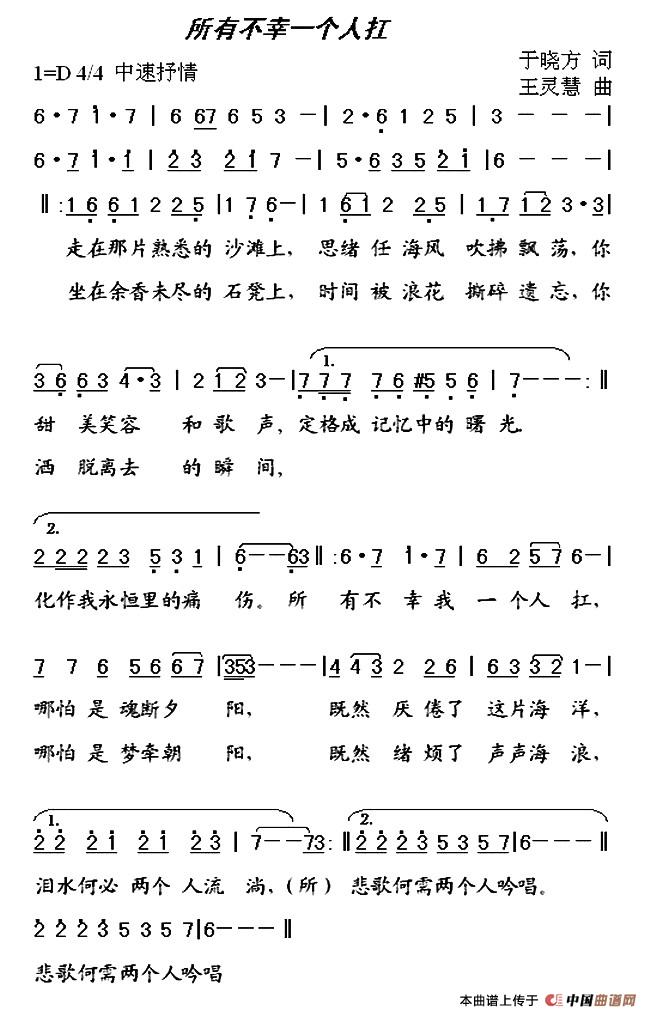 所有不幸一个人扛
1=D 4/4 中速抒情
于晓方 词
王灵慧 曲
6·7 1·7 | 6 67 6 5 3 – | 2·6 1 2 5 | 3 – – – |
6·7 1·1 | 2 3 2 1 7 – | 5·6 3 5 2 1 | 6 – – – |
‖:1 6 6 1 2 2 5 | 1 7 6 – | 1 6 1 2 2 5 | 1 7 1 2 3·3 |
走在那片熟悉的 沙滩上, 思绪 任 海风 吹拂 飘荡, 你
坐在余香未尽的 石凳上, 时间 被 浪花 撕碎 遗忘, 你
1.
3 6 6 3 4·3 | 2 1 2 3 – | 7 7 7 7 6 #5 5 6 | 7 – – – :‖
甜 美笑容 和 歌 声, 定格成 记忆中的 曙 光.
洒 脱离去 的 瞬 间,
2.
2 2 2 2 3 5 3 1 | 6 – – 6 3 ‖:6·7 1·7 | 6 2 5 7 6 – |
化作我永恒里的痛 伤。 所 有不 幸 我 一 个人 扛,
7 7 6 5 6 6 7 | 3 5 3 – – – | 4 4 3 2 2 6 | 6 3 3 2 1 – |
哪怕 是 魂断夕 阳, 既然 厌 倦了 这片海 洋,
哪怕 是 梦牵朝 阳, 既然 绪 烦了 声声海 浪,
1. 2.
2 2 2 1 2 1 2 3 | 7 – – 7 3 :‖ 2 2 2 3 5 3 5 7 | 6 – – – |
泪水何必 两个 人流 淌,(所) 悲歌何需两个人吟唱。
2 2 2 3 5 3 5 7 | 6 – – – ‖
悲歌何需两个人吟唱
本曲谱上传于 中国曲谱网